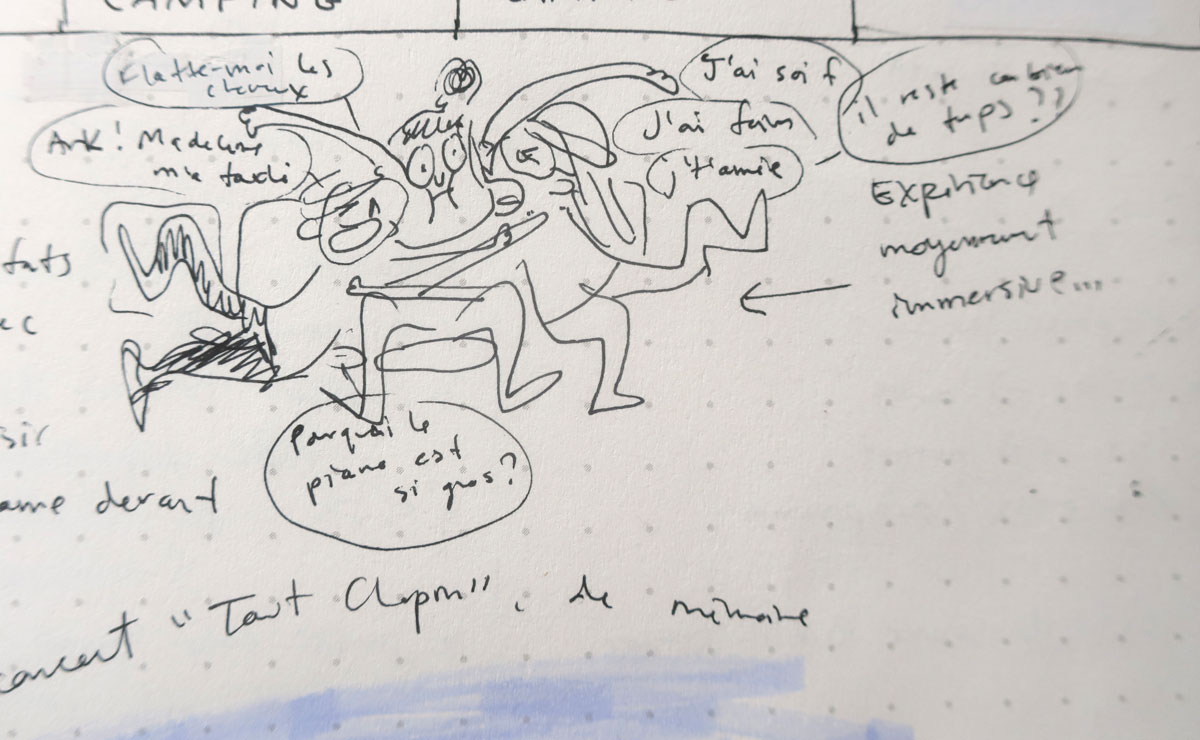 CAMPING
Flatte-moi les
cheveux
Ark! Madeleine
m'a
J'ai soif
J'ai faim
j't'aime
il reste combien
de temps??
Expérience
moyennement
immersive...
Pourquoi le
piano est
si gros?
devant
concert "Tout Chopin", de mémoire